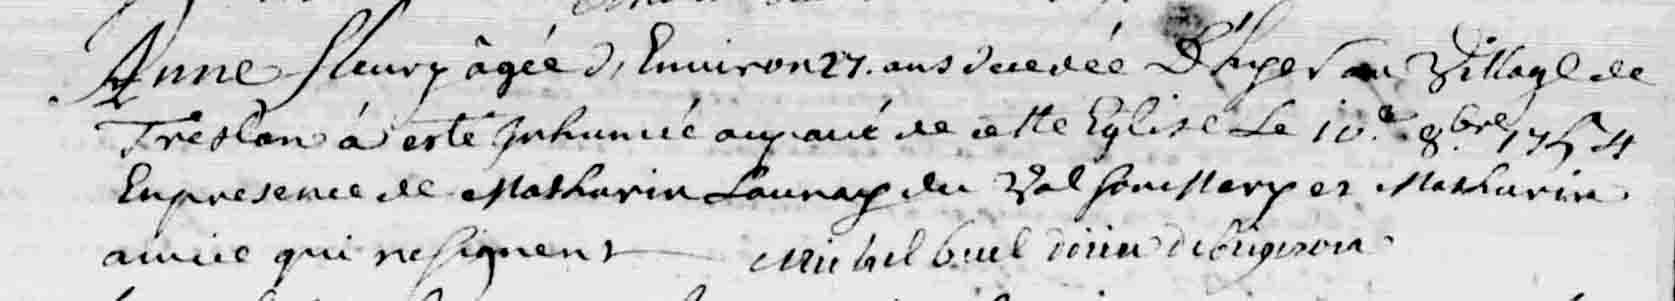 Anne fleury âgée d'Environ 27. ans decedée D'hyer au Village de
Treslan à esté Inhumée au pavé de cette Eglise Le 10.e 8bre 1754
En presence de Mathurin Launay du Val son Mary et Mathurin
amice qui ne signent Michel